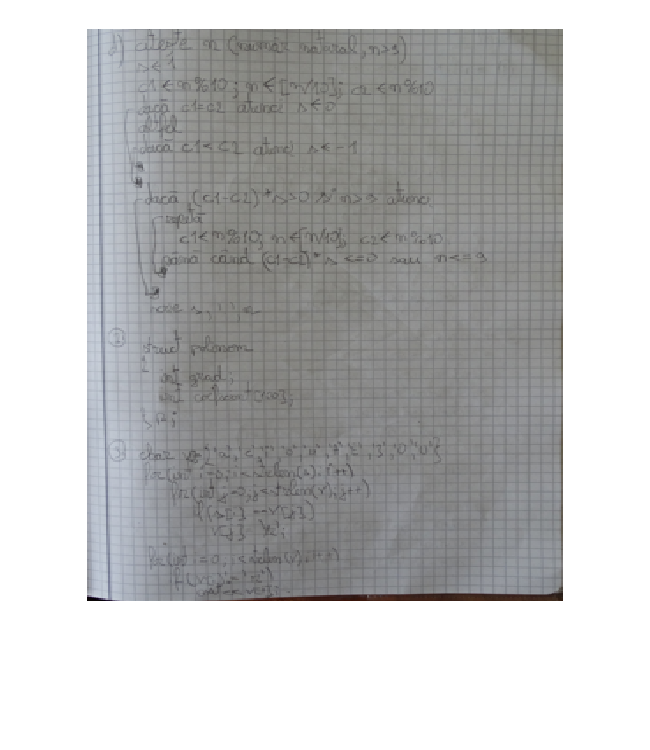 d) citește n (număr natural, n>9)
s←1
c1←n%10; n←[n/10]; c2←n%10
dacă c1=c2 atunci s←0
altfel
dacă c1<c2 atunci s←-1
dacă (c1-c2)*s>0 și n>9 atunci
repetă
c1←n%10; n←[n/10]; c2←n%10
până când (c1-c2)*s<=0 sau n<=9
scrie s,
② struct polinom
{
int grad;
int coeficient[100];
};
③ char v
for(int i=0; i<strlen(s); i++)
for(int j=0; j<strlen(v); j++)
if(s[i]==v[j])
v[j]
for(int i=0; i<strlen(v); i++)
if(v[i]